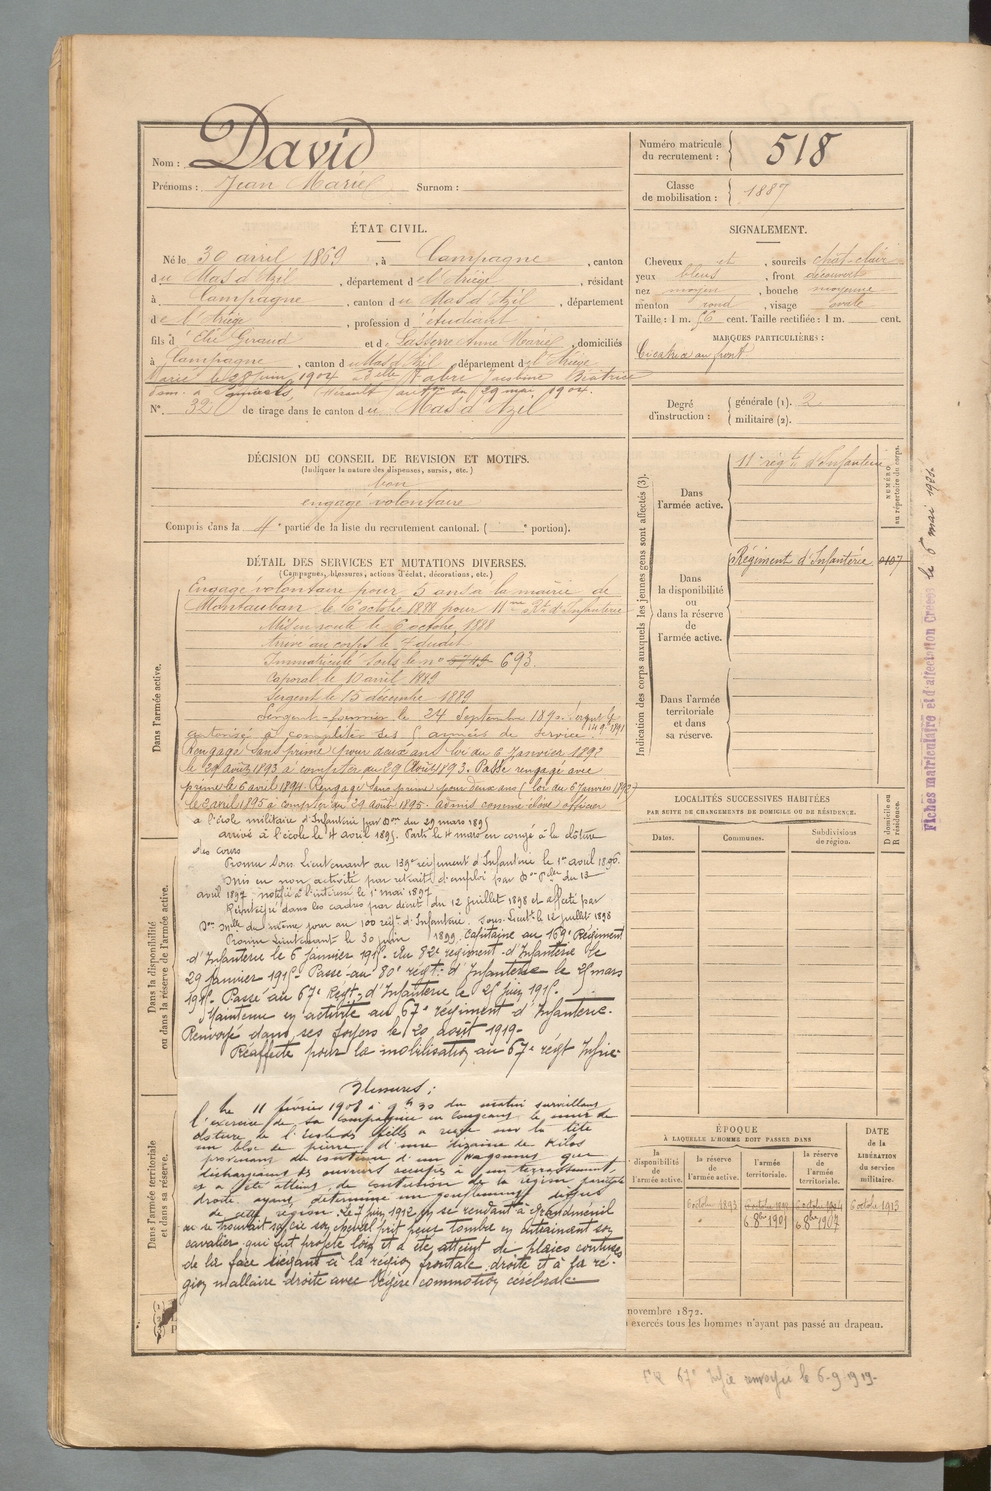 Nom : David
Prénoms : Jean Marie Surnom :
Numéro matricule du recrutement : 518
Classe de mobilisation : 1887
ÉTAT CIVIL.
Né le 30 avril 1869, à Campagne, canton
du Mas d'Azil, département de l'Ariège, résidant
à Campagne, canton du Mas d'Azil, département
de l'Ariège, profession d'étudiant
fils d'Elie Giraud et de Lasserre Anne Marie, domiciliés
à Campagne, canton du Mas d'Azil, département de l'Ariège
Marié le 28 juin 1904 à Delle Fabre Justine Béatrice
dom. à Hérault aut. du 29 mai 1904.
N°. 32 de tirage dans le canton du Mas d'Azil
SIGNALEMENT.
Cheveux et, sourcils chât-clair
yeux bleus, front découvert
nez moyen, bouche moyenne
menton rond, visage ovale
Taille : 1 m. 56 cent. Taille rectifiée : 1 m. cent.
MARQUES PARTICULIÈRES :
Cicatrice au front
Degré d'instruction : générale (1). 2
militaire (2).
DÉCISION DU CONSEIL DE REVISION ET MOTIFS.
(Indiquer la nature des dispenses, sursis, etc.)
bon
engagé volontaire
Compris dans la 4e partie de la liste du recrutement cantonal. ( e portion).
DÉTAIL DES SERVICES ET MUTATIONS DIVERSES.
(Campagnes, blessures, actions d'éclat, décorations, etc.)
Dans l'armée active.
Engagé volontaire pour 5 ans à la mairie de
Montauban le 6 octobre 1888 pour 11me Rt d'Infanterie
Mis en route le 6 octobre 1888
Arrivé au corps le 7 dudit
Immatriculé sous le n° 5749 693.
Caporal le 10 avril 1889
Sergent le 15 décembre 1889
Sergent-fourrier le 24 Septembre 1890.
autorisé à compléter ses 5 années de service.
Rengagé sans prime pour deux ans loi du 6 Janvier 1892
le 29 août 1893 à compter du 29 Août 1893. Passé rengagé avec
prime le 6 avril 1894. Rengagé sans prime pour deux ans (loi du 6 Janvier 1892)
le 2 avril 1895 à compter du 29 août 1895. admis comme élève officier
à l'école militaire d'Infanterie par Don du 29 mars 1895
arrivé à l'école le 4 avril 1895. Parti le 4 mars en congé à la clôture
des cours
Promu Sous Lieutenant au 139e régiment d'Infanterie le 1er avril 1896.
Mis en non activité par retrait d'emploi par Don Pelle du 13
avril 1897 notifié à l'intéressé le 1er mai 1897
Réintégré dans les cadres par décret du 12 juillet 1898 et affecté par
Don Mlle du même jour au 100 régt d'Infanterie. Sous-Lieutt le 12 juillet 1898
Promu Lieutenant le 30 juin 1899. Capitaine au 169e Régiment
d'Infanterie le 6 janvier 1915. Au 82e régiment d'Infanterie le
29 janvier 1915. Passé au 80e régt d'Infanterie le 25 mars
1915. Passé au 67e Regt d'Infanterie le 25 juin 1915.
Maintenu en activité au 67e régiment d'Infanterie.
Renvoyé dans ses foyers le 20 août 1919.
Réaffecté pour la mobilisation au 67e regt Infrie
Blessures :
Le 11 février 1908 à 9h 30 du matin surveillant
l'exercice de sa compagnie en longeant le mur de
clôture de l'école des filles a reçu sur la tête
un bloc de pierre d'une dizaine de kilos
provenant du contenu d'un wagonnet que
déchargeaient des ouvriers occupés à un terrassement,
et a été atteint de contusion de la région pariétale
droite ayant déterminé un gonflement diffus
de cette région. Le 7 juin 1912 en se rendant à Grandménil
où se trouvait sa Cie son cheval prit peur tomba en entraînant son
cavalier qui fut projeté loin et a été atteint de plaies contuses
de la face siégeant à la région frontale droite et à la ré-
gion malaire droite avec légère commotion cérébrale
Dans la disponibilité ou dans la réserve de l'armée active.
Dans l'armée territoriale et dans sa réserve.
Indication des corps auxquels les jeunes gens sont affectés (3).
NUMÉRO au répertoire du corps.
Dans l'armée active. 11e régt d'Infanterie
Dans la disponibilité ou dans la réserve de l'armée active. Régiment d'Infanterie 0107
Dans l'armée territoriale et dans sa réserve.
LOCALITÉS SUCCESSIVES HABITÉES
PAR SUITE DE CHANGEMENTS DE DOMICILE OU DE RÉSIDENCE.
Dates. Communes. Subdivisions de région. D domicile ou R résidence.
ÉPOQUE
À LAQUELLE L'HOMME DOIT PASSER DANS
la disponibilité de l'armée active. la réserve de l'armée active. l'armée territoriale. la réserve de l'armée territoriale.
DATE de la LIBÉRATION du service militaire.
6 octobre 1893 6 octobre 6 octobre 6 octobre 1913
6 8bre 1901 6 8bre 1907
novembre 1872.
exercés tous les hommes n'ayant pas passé au drapeau.
67e Infie envoyée le 6-9-1919.
Fiches matriculaire et d'affectation Créées le 6 mai